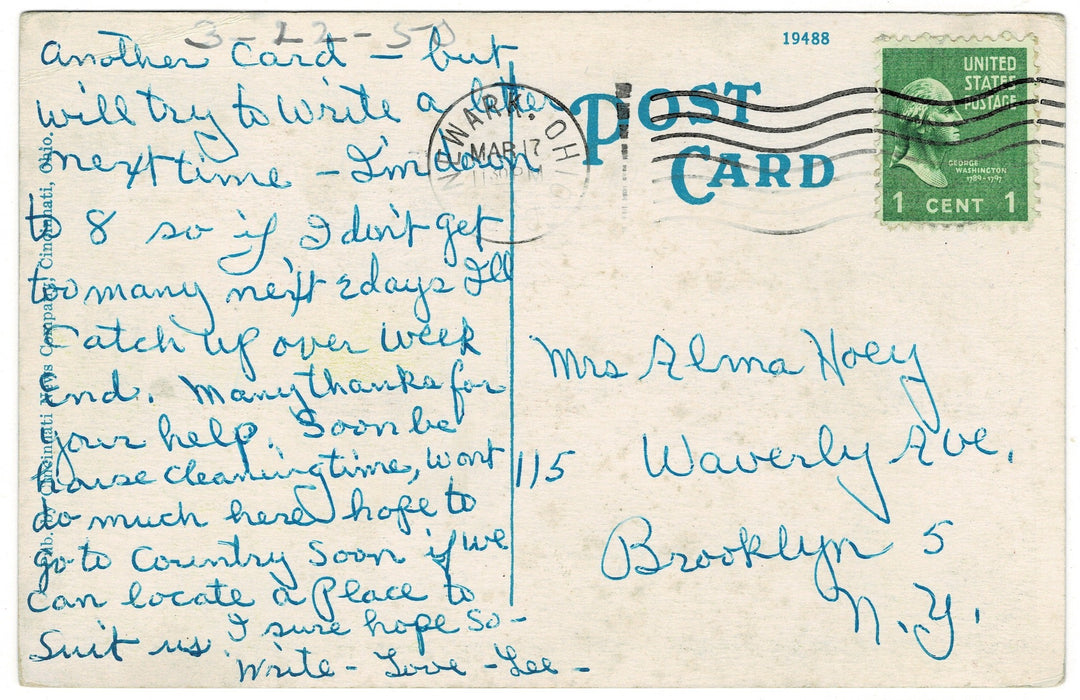 3-22-50
Another Card - but
will try to write a letter
next time - I'm down
to 8 so if I don't get
too many next 2 days I'll
Catch up over week
end. Many thanks for
your help. Soon be
house cleaning time, wont
do much here hope to
go to Country soon if we
can locate a place to
suit us. I sure hope so -
Write - Love - Lee -
Pub. by Cincinnati News Company, Cincinnati, Ohio.
19488
POST
CARD
NEWARK, OHIO
MAR 17
UNITED
STATES
POSTAGE
GEORGE
WASHINGTON
1789-1797
1 CENT 1
Mrs Alma Hoey
115 Waverly Ave.
Brooklyn 5
N.Y.